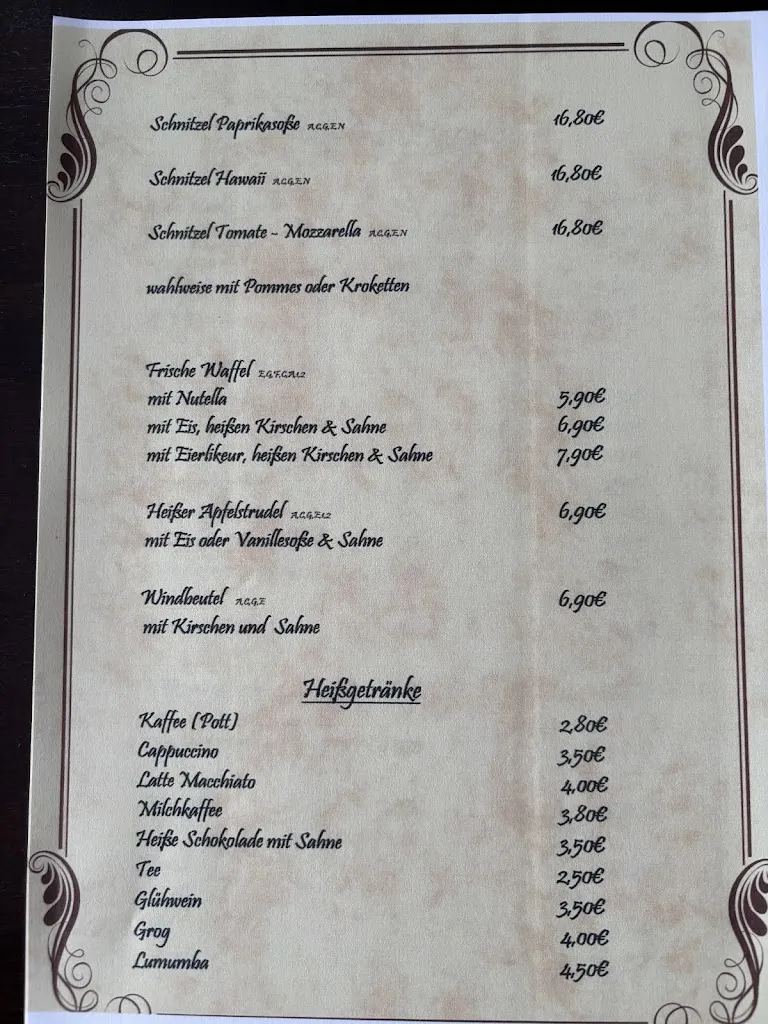 Schnitzel Paprikasoße A,C,G,E,N 16,80€
Schnitzel Hawaii A,C,G,E,N 16,80€
Schnitzel Tomate - Mozzarella A,C,G,E,N 16,80€
wahlweise mit Pommes oder Kroketten
Frische Waffel
mit Nutella 5,90€
mit Eis, heißen Kirschen & Sahne 6,90€
mit Eierlikeur, heißen Kirschen & Sahne 7,90€
Heißer Apfelstrudel 6,90€
mit Eis oder Vanillesoße & Sahne
Windbeutel A,C,G,E 6,90€
mit Kirschen und Sahne
Heißgetränke
Kaffee (Pott) 2,80€
Cappuccino 3,50€
Latte Macchiato 4,00€
Milchkaffee 3,80€
Heiße Schokolade mit Sahne 3,50€
Tee 2,50€
Glühwein 3,50€
Grog 4,00€
Lumumba 4,50€